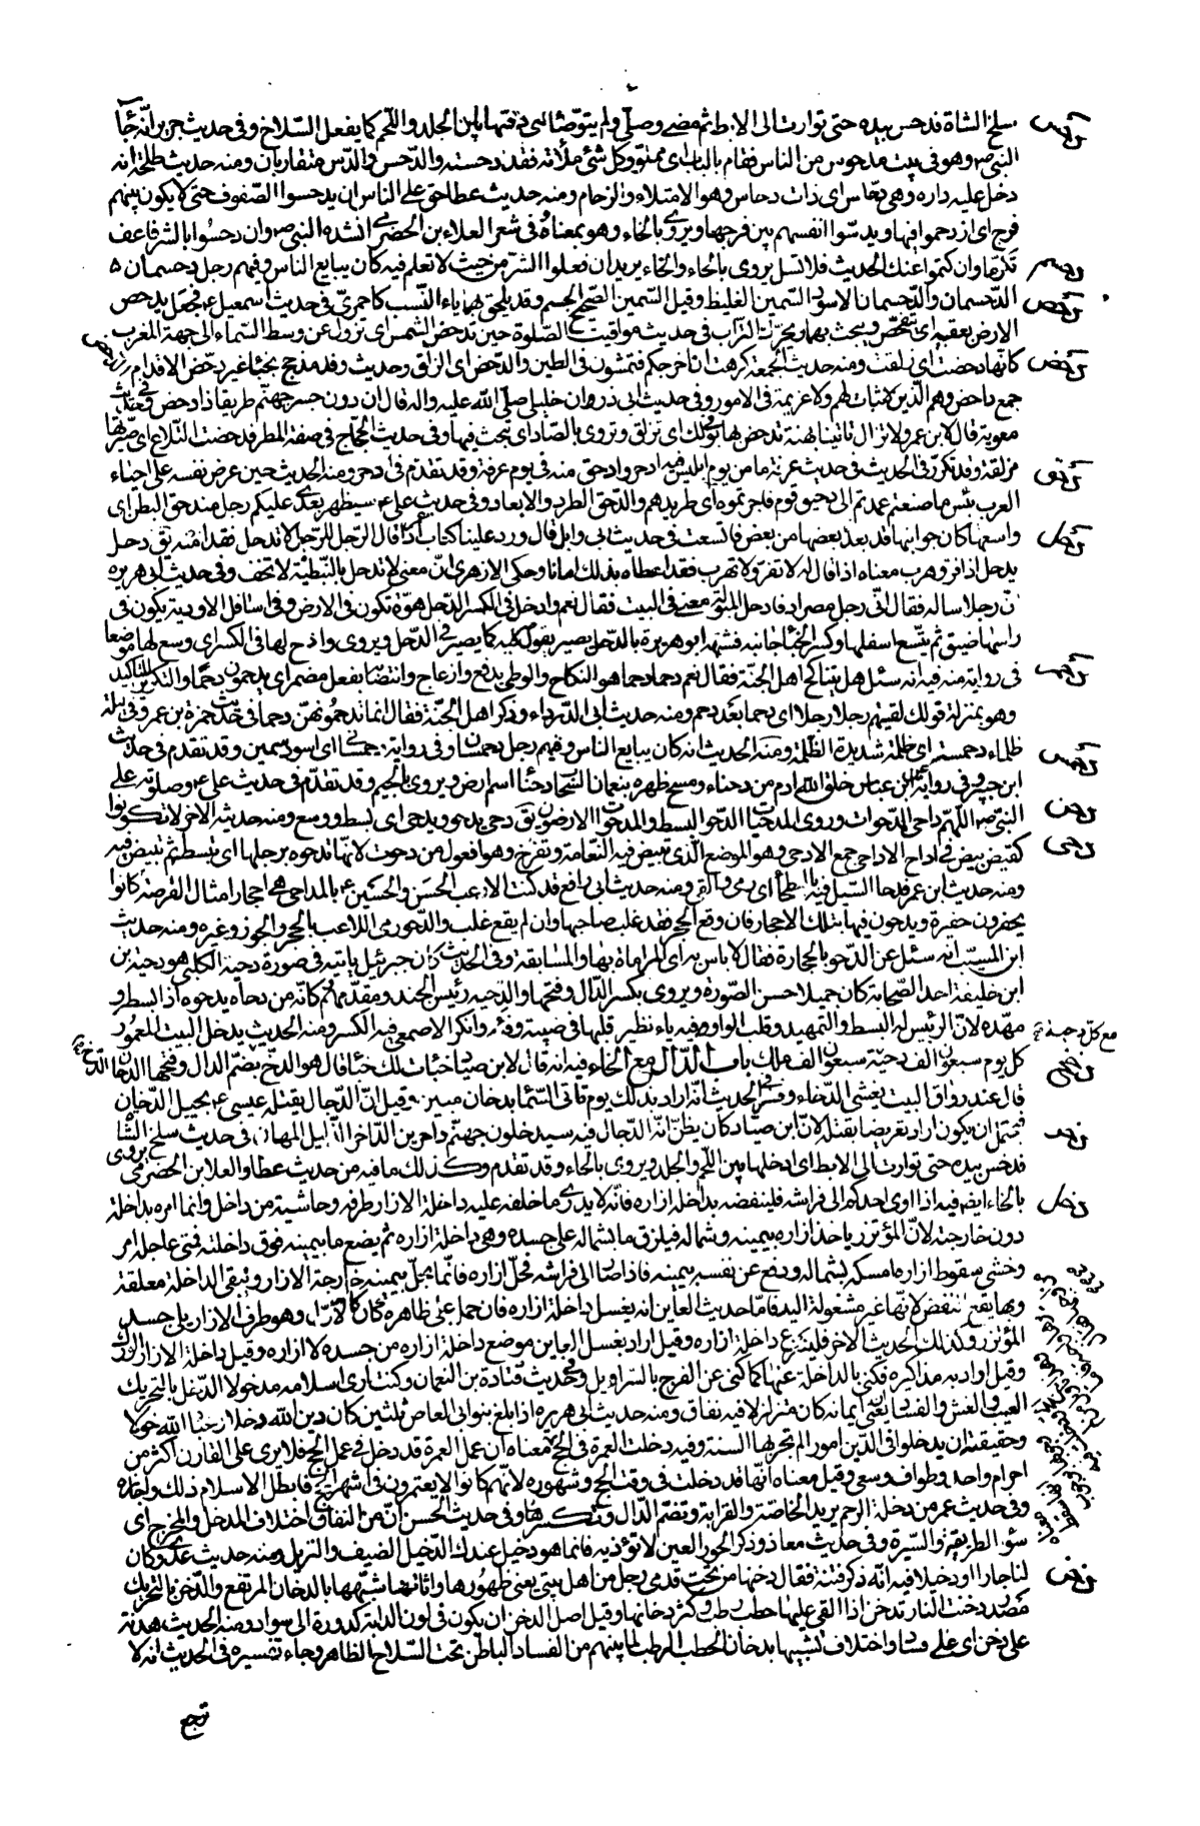 دحس سلخ الشاة فدحس بيده حتى توارت الى الابط ثم مضى وصلى ولم يتوضأ اى دسها بين الجلد واللحم كما يفعل السلاخ وفى حديث جرير انه جاء
النبى ص وهو فى بيت مدحوس من الناس فقام بالباب اى مملو وكل شئ ملأته فقد دحسته والدحس والدس متقاربان ومنه حديث طلحة انه
دخل عليه داره وهى دحاس اى ذات دحاس وهو الامتلاء والزحام ومنه حديث عطا حق على الناس ان يدحسوا الصفوف حتى لا يكون بينهم
فرج اى ازدحموا فيها ويدسوا انفسهم بين فرجها ويروى بالخاء وهو بمعناه وفى شعر العلاء بن الحضرمى انشده النبى ص وان دحسوا بالشر فاعف
دحسم تكرما وان كتموا عنك الحديث فلا تسل يروى بالحاء والخاء يريد ان فعلوا الشر من حيث لا تعلم فيه كان يبايع الناس وفيهم رجل دحسمان ه
دحص الدحسمان والدحمسان الاسود السمين الغليظ وقيل السمين الصحيح الجسم وقد يلحق بهما ياء النسب كاحمرى فى حديث اسمعيل ع فجعل يدحص
الارض بعقبيه اى يفحص ويبحث بهما ويحرك التراب فى حديث مواقيت الصلوة حين تدحض الشمس اى تزول عن وسط السماء الى جهة المغرب
دحض كانها دحضت اى زلقت ومنه حديث الجمعة كرهت ان اخرجكم فتمشون فى الطين والدحض اى الزلق وحديث وفد مذحج نجباء غير دحض الاقدام
جمع داحض وهم الذين لا ثبات لهم ولا عزيمة فى الامور وفى حديث ابى ذر وان خليلى صلى الله عليه واله قال ان دون جسر جهنم طريقا ذا دحض وفى حديث
معوية قال لابن عمرو لا تزال تاتينا بهنة تدحض بها فى بولك اى تزلق وتروى بالصاد اى تبحث فيها وفى حديث الحجاج فى صفة المطر فدحضت التلاع اى صيرتها
دحق مزلقة وقد تكرر فى الحديث فى حديث عرفة ما من يوم ابليس فيه ادحر ولا ادحق منه فى يوم عرفة وقد تقدم فى ادحر ومنه الحديث حين عرض نفسه على احياء
العرب بئس ما صنعتم عمدتم الى دحيق قوم فاجرتموه اى طريدهم والدحق الطرد والابعاد وفى حديث على ع سيظهر بعدى عليكم رجل مندحق البطن اى
دحل واسعها كان جوانبها قد بعد بعضها من بعض فاتسعت فى حديث ابى وايل قال ورد علينا كتاب اذا قال الرجل للرجل لا تدحل فقد امنه يق دحل
يدحل اذا فر وهرب معناه اذا قال له لا تفر ولا تهرب فقد اعطاه بذلك امانا وحكى الازهرى ان معنى لا تدحل بالنبطية لا تخف وفى حديث ابى هريره
ان رجلا ساله فقال انى رجل مصراد فادخل المبولة معى فى البيت فقال نعم وادحل فى الكسر الدحل هوة تكون فى الارض وفى اسافل الاودية يكون فى
راسها ضيق ثم يتسع اسفلها وكسر الخباء جانبه فشبه ابو هريرة بالدحل يصير يقول كما يصير فى الدحل ويروى وادح لها فى الكسر اى وسع لها موضعا
دحم فى رواية منه فيه انه سئل هل يتناكح اهل الجنة فقال نعم دحما دحما هو النكاح والوطى بدفع وازعاج وانتصابه بفعل مضمر اى يدحمون دحما والتكرير للتاكيد
وهو بمنزلة قولك لقيتهم رجلا رجلا اى دحما بعد دحم ومنه حديث ابى الدرداء وذكر اهل الجنة فقال انما تدحمونهن دحما فى حديث حمزة بن عمرو فى ليلة
دحمس ظلماء دحمسة اى ظلمة شديدة الظلمة ومنه الحديث انه كان يبايع الناس وفيهم رجل دحمسان وفى رواية دحمسانى اى اسود سمين وقد تقدم فى حديث
دحن ابن جبير فى رواية ابن عباس خلق الله ادم من دحناء ومسح ظهره بنعمان السحاب دحناء اسم ارض ويروى بالجيم وقد تقدم فى حديث على ع وصلوته على
النبى ص اللهم داحى المدحوات وروى المدحيات الدحو البسط والمدحوات الارضون يق دحى يدحو ويدحى اى بسط ووسع ومنه حديثه الاخر لا تكونوا
دحى كقيض بيض فى اداح الاداحى جمع الادحى وهو الموضع الذى تبيض فيه النعامة وتفرخ وهو افعول من دحوت لانها تدحوه برجلها اى تبسطه ثم تبيض فيه
ومنه حديث ابن عمر فدحا السيل فيه بالبطحاء اى رمى والقى ومنه حديث ابى رافع قد كنت الاعب الحسن والحسين ع بالمداحى هى احجار امثال القرصة كانوا
يحفرون حفرة ويدحون فيها بتلك الاحجار فان وقع الحجر فقد غلب صاحبها وان لم يقع غلب والدحو رمى اللاعب بالحجر والجوز وغيره ومنه حديث
ابن المسيب انه سئل عن الدحو بالحجارة فقال لا باس به اى المراماة بها والمسابقة وفى الحديث كان جبرئيل ياتيه فى صورة دحية الكلبى هو دحية بن
ابن خليفة احد الصحابة كان جميلا حسن الصورة ويروى بكسر الدال وفتحها والدحية رئيس الجند ومقدمهم كانه من دحاه يدحوه اذا بسطه و
مهده لان الرئيس له البسط والتمهيد وقلب الواو فيه ياء نظير قلبها فى صبية وفتية وانكر الاصمعى فيه الكسر ومنه الحديث يدخل البيت المعمور
مع كل دحية
كل يوم سبعون الف دحية سبعون الف ملك باب الدال مع الخاء فيه انه قال لابن صياد خبات لك خبئا قال هو الدخ بضم الدال وفتحها الدخان
دخخ قال عند رواق البيت يغشى الدخا وفسر فى الحديث انه اراد بذلك يوم تاتى السماء بدخان مبين وقيل ان الدجال يقتله عيسى ع بجبل الدخان
دخر فيحتمل ان يكون اراد تعريضا بقتله لان ابن صياد كان يظن انه الدجال فيه سيدخلون جهنم داخرين الداخر الذليل المهان فى حديث سلخ الشاة
فدخس بيده حتى توارت الى الابط اى ادخلها بين اللحم والجلد ويروى بالحاء وقد تقدم وكذلك ما فيه من حديث عطا والعلا بن الحضرمى يروى
دخل بالخاء ايضا فيه اذا اوى احدكم الى فراشه فلينفضه بداخلة ازاره فانه لا يدرى ما خلفه عليه داخلة الازار طرفه وحاشيته من داخل وانما امره بداخلته
دون خارجته لان المؤتزر ياخذ ازاره بيمينه وشماله فيلزق ما بشماله على جسده وهى داخلة ازاره ثم يضع ما بيمينه فوق داخلته فمتى عاجله امر
وخشى سقوط ازاره امسكه بشماله ودفع عن نفسه بيمينه فاذا صار الى فراشه فحل ازاره فانما يحل بيمينه خارجة الازار وتبقى الداخلة معلقة
وبها يقع النفض لانها غير مشغولة اليد فاما حديث العاين انه يغسل داخلة ازاره فان حمل على ظاهره كان كالاول وهو طرف الازار يلى جسد
المؤتزر وكذلك الحديث الاخر فلينزع داخلة ازاره وقيل اراد يغسل العاين موضع داخلة ازاره من جسده لا ازاره وقيل داخلة الازار الورك
وقيل اراد به مذاكيره فكنى بالداخلة عنها كما كنى عن الفرج بالسراويل وفى حديث قتادة بن النعمان وكنت ارى اسلامه مدخولا الدخل بالتحريك
العيب والغش والفساد يعنى ايمانه كان متزلزلا فيه نفاق ومنه حديث ابى هريره اذا بلغ بنو ابى العاص ثلثين كان دين الله دخلا وعباد الله خولا
وحقيقته ان يدخلوا فى الدين امورا لم تجر بها السنة وفيه دخلت العمرة فى الحج معناه ان عمل العمرة قد دخل فى عمل الحج فلا يرى على القارن اكثر من
احرام واحد وطواف وسعى وقيل معناه انها قد دخلت فى وقت الحج وشهوره لانهم كانوا لا يعتمرون فى اشهر الحج فابطل الاسلام ذلك واجازه
وفى حديث عمر من دخلة الرحم يريد الخاصة والقرابة وتضم الدال وتكسر وفى حديث الحسن ان من النفاق اختلاف المدخل والمخرج اى
سوء الطريقة والسيرة وفى حديث معاذ وذكر الحور العين لا تؤذيه فانما هو دخيل عندك الدخيل الضيف والنزيل ومنه حديث عدى وكان
دخن لنا جارا او دخيلا فيه انه ذكر فتنة فقال دخنها من تحت قدمى رجل من اهل بيتى يعنى ظهورها واثارتها شبهها بالدخان المرتفع والدخن بالتحريك
مصدر دخنت النار تدخن اذا القى عليها حطب رطب وكثر دخانها وقيل اصل الدخن ان يكون فى لون الدابة كدورة الى سواد ومنه الحديث هدنة
على دخن اى على فساد واختلاف تشبيها بدخان الحطب الرطب لما بينهم من الفساد الباطن تحت الصلاح الظاهر وجاء تفسيره فى الحديث انه لا
ترجع